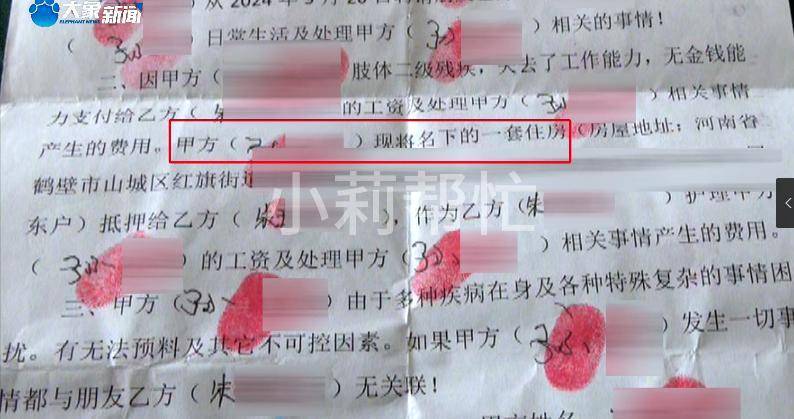 大象新闻
ELEPHANT NEWS
从2024年5月20日
（ ）日常生活及处理甲方（ ）相关的事情！
二、因甲方（ ）肢体二级残疾，失去了工作能力，无金钱能
力支付给乙方（朱 ）的工资及处理甲方（ ）相关事情
产生的费用。甲方（ ）现将名下的一套住房（房屋地址：河南省
鹤壁市山城区红旗街道
东户）抵押给乙方（朱 ），作为乙方（朱 ）护理甲方
（ ）的工资及处理甲方（ ）相关事情产生的费用。
三、甲方（ ）由于多种疾病在身及各种特殊复杂的事情困
扰。有无法预料及其它不可控因素。如果甲方（ ）发生一切事
情都与朋友乙方（朱 ）无关联！
甲方姓名
小莉帮忙